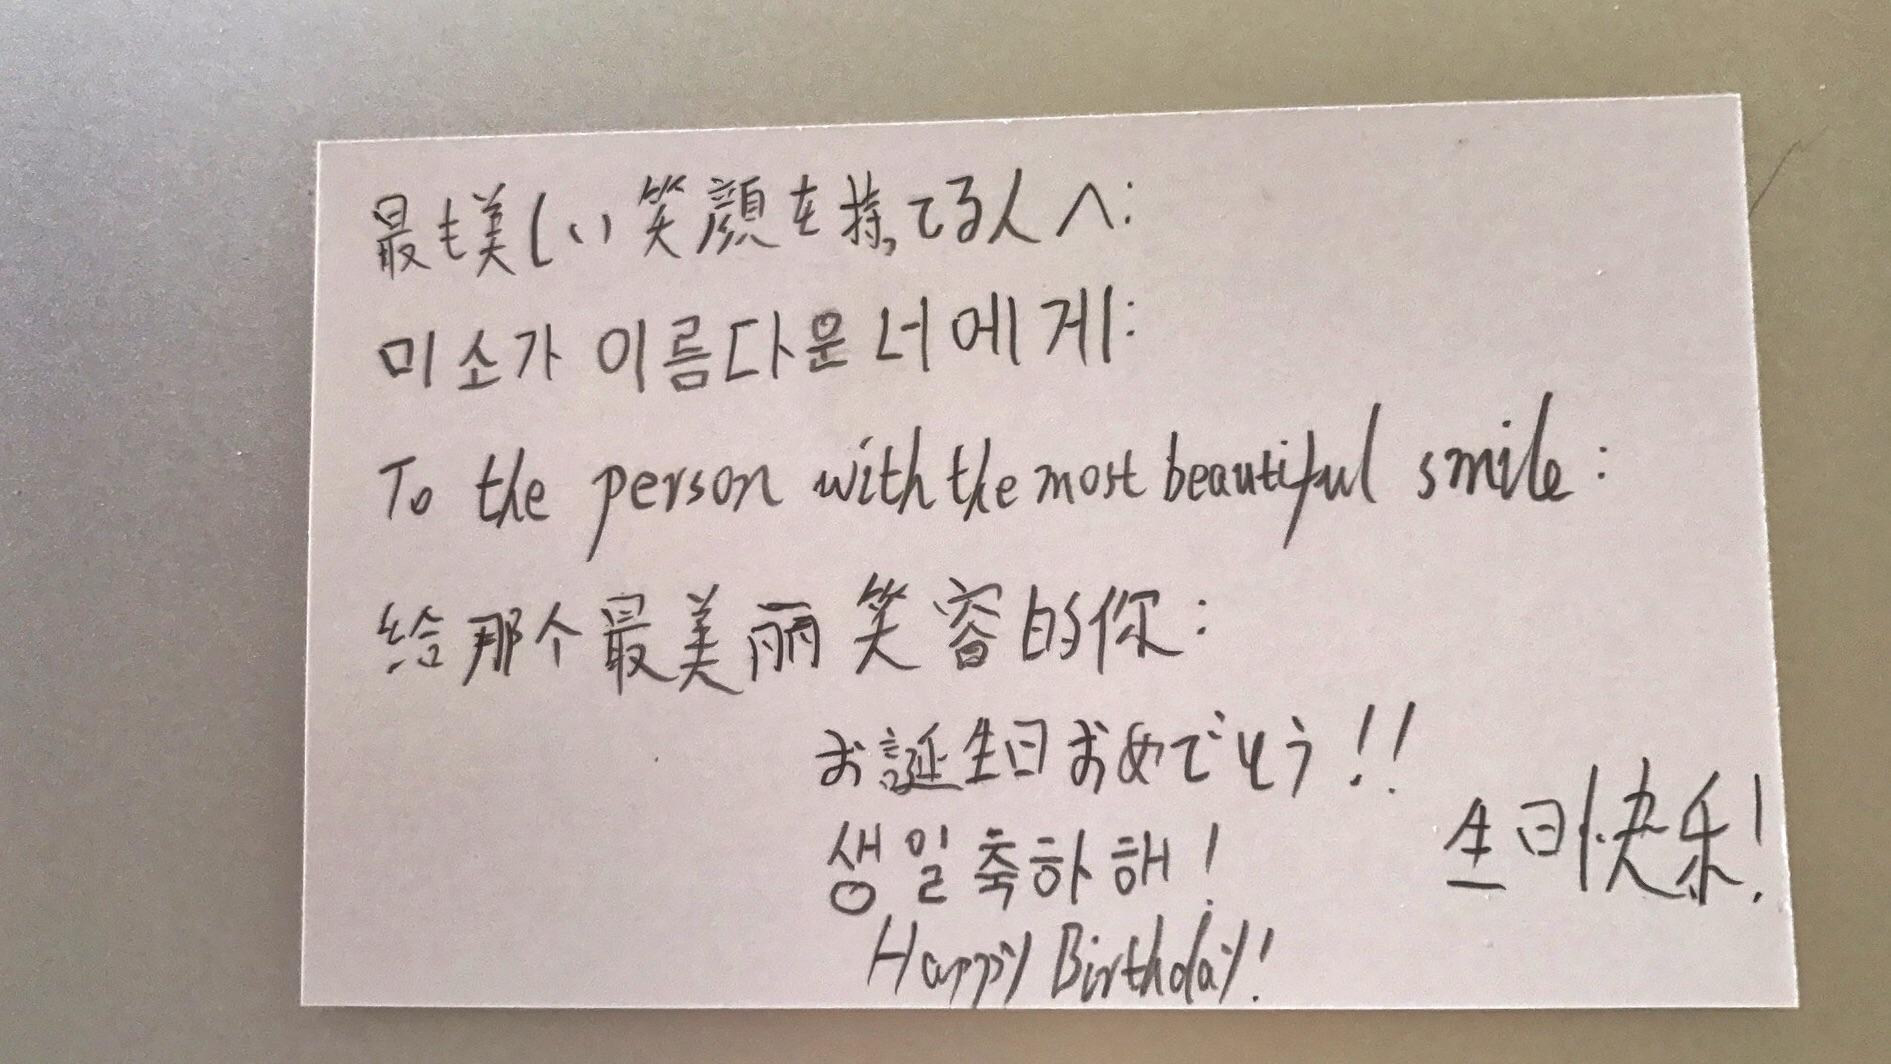 最も美しい笑顔を持ってる人へ:
미소가 이름다운 너에게:
To the person with the most beautiful smile:
给那个最美丽笑容的你:
お誕生日おめでとう!!
생일 축하해!
生日快乐!
Happy Birthday!